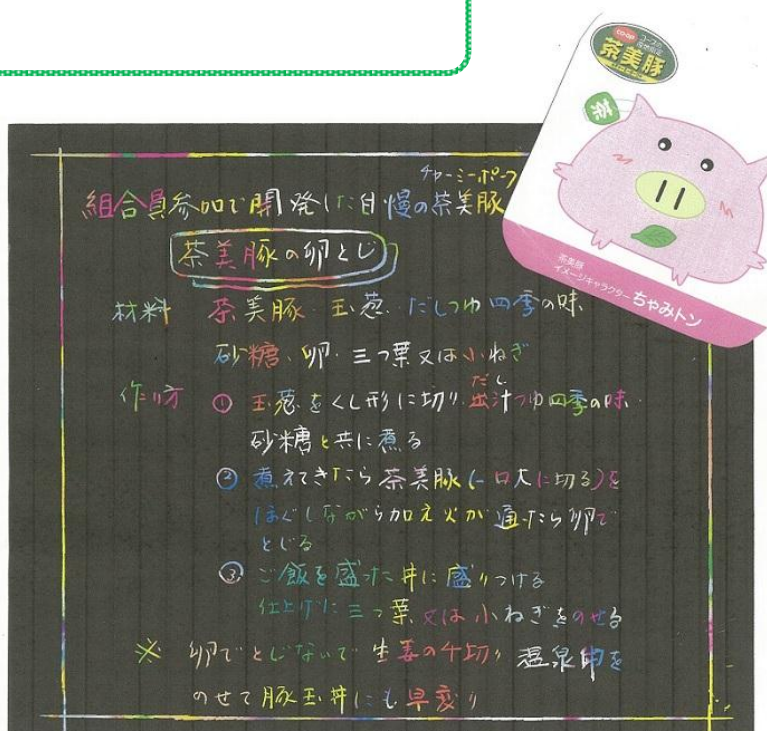 co-op コープの産地指定
茶美豚
茶
茶美豚
イメージキャラクター ちゃみトン
チャーミーポーク
組合員参加で開発した自慢の茶美豚
茶美豚の卵とじ
材料 茶美豚・玉葱・だしつゆ四季の味、
砂糖、卵・三つ葉又は小ねぎ
作り方 ① 玉葱をくし形に切り、出汁つゆ四季の味、
だし
砂糖と共に煮る
② 煮えてきたら茶美豚(一口大に切る)を
ほぐしながら加え火が通ったら卵で
とじる
③ ご飯を盛った丼に盛りつける
仕上げに三つ葉又は小ねぎをのせる
※ 卵でとじないで生姜の千切り、温泉卵を
のせて豚玉丼にも早変り